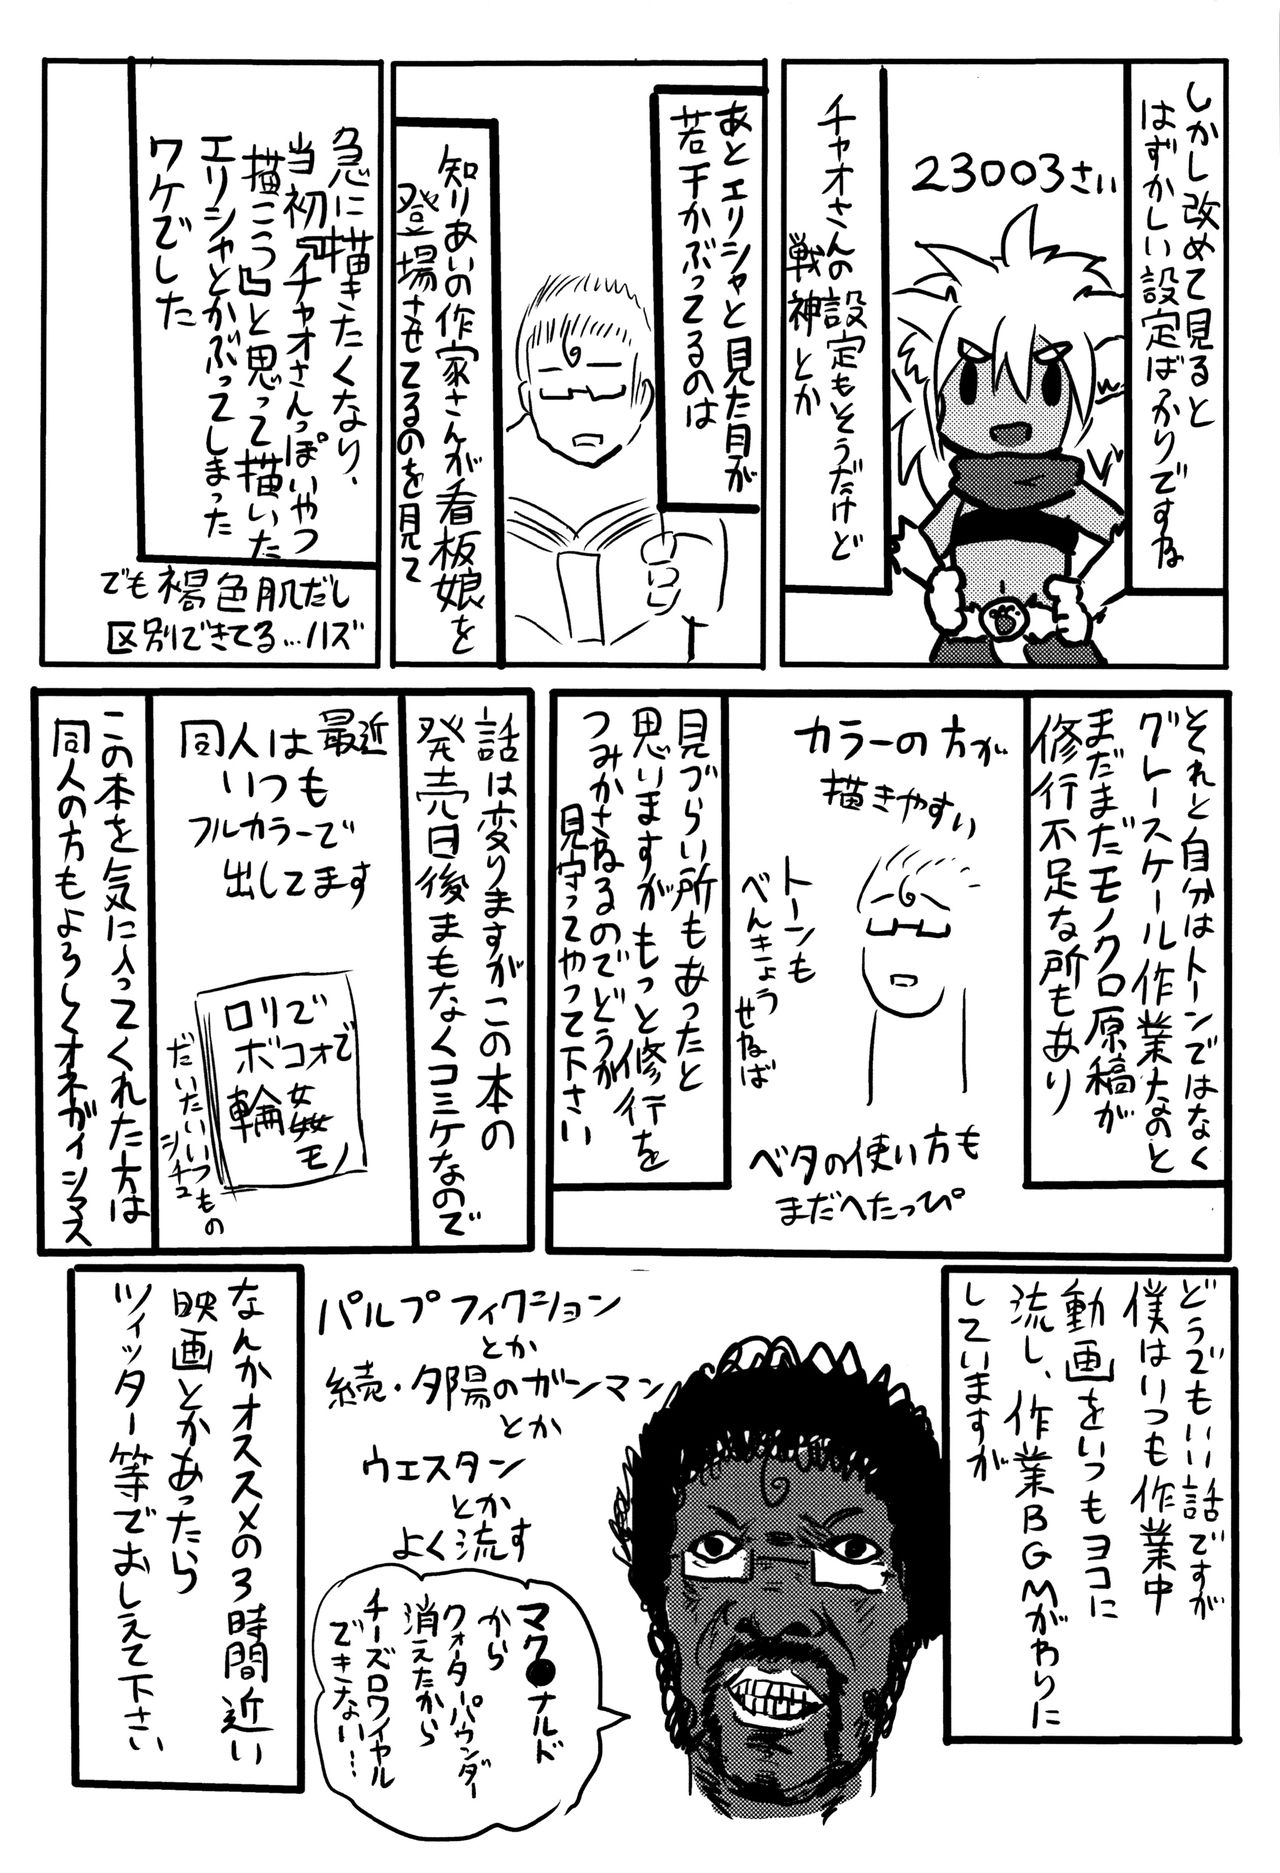 しかし改めて見ると
はずかしい設定ばっかりですね
23003さい
チャオさんの設定もそうだけど
戦神とか
あとエリシャと見た目が
若干かぶってるのは
知りあいの作家さんが看板娘を
登場させてるのを見て
急に描きたくなり、
当初『チャオさんっぽいやつ
描こう凸と思って描いた
エリシャとかぶってしまった
ワケでした
でも褐色肌だし
区別できてる…ハズ
それと自分はトーンではなく
グレースケール作業なのと
まだまだモノクロ原稿が
修行不足な所もあり
カラーの方が
描きやすい
トーンも
べんきょう
せねば
ベタの使い方も
まだへたっぴ
見づらい所もあったと
思いますがもっと修行を
つみかさねるのでどうか
見守ってやって下さい
話は変りますがこの本の
発売日後まもなくコミケなので
最近
同人は
いつも
フルカラーで
出してます
ロリで
ボコォで
輪姦
モノ
だいたいいつもの
シチュ
この本を気に入ってくれた方は
同人の方もよろしくオネガイシマス
どうでもいい話ですが
僕はいつも作業中
動画をいつもヨコに
流し、作業BGMがわりに
していますが
パルプフィクション
とか
続・夕陽のガンマン
とか
ウエスタン
とか
よく流す
マク●ナルド
から
クォーターパウンダー
消えたから
チーズロワイヤル
できない…
なんかオススメの3時間近い
映画とかあったら
ツイッター等でおしえて下さい